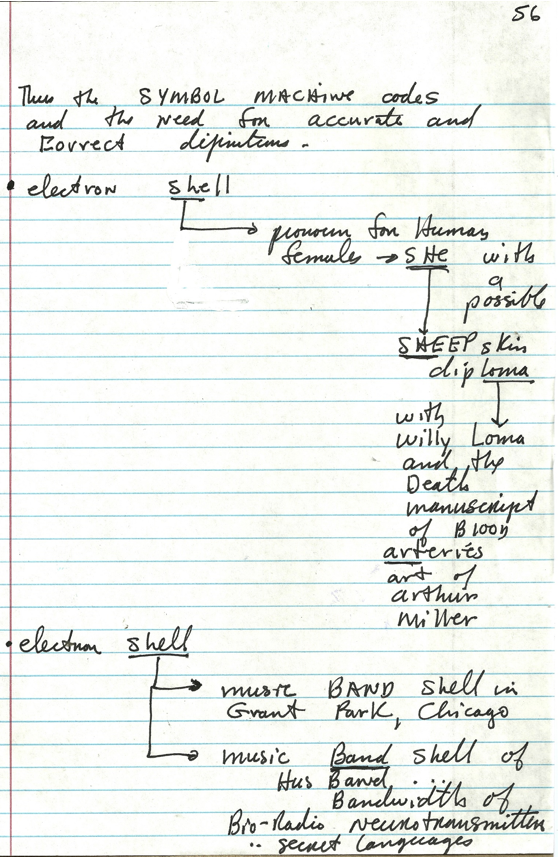 56
Thus the SYMBOL MACHINE codes
and the need for accurate and
Correct difinitions.
• electron shell
pronoun for Human
females → SHE with
a
possible
SHEEP skin
diploma
with
Willy Loma
and the
Death
manuscript
of Blood
arteries
art of
arthur
Miller
• electron shell
music BAND shell in
Grant Park, Chicago
music Band shell of
Hus Band ...
Bandwidths of
Bio-Radio Neurotransmitter
.. secret languages